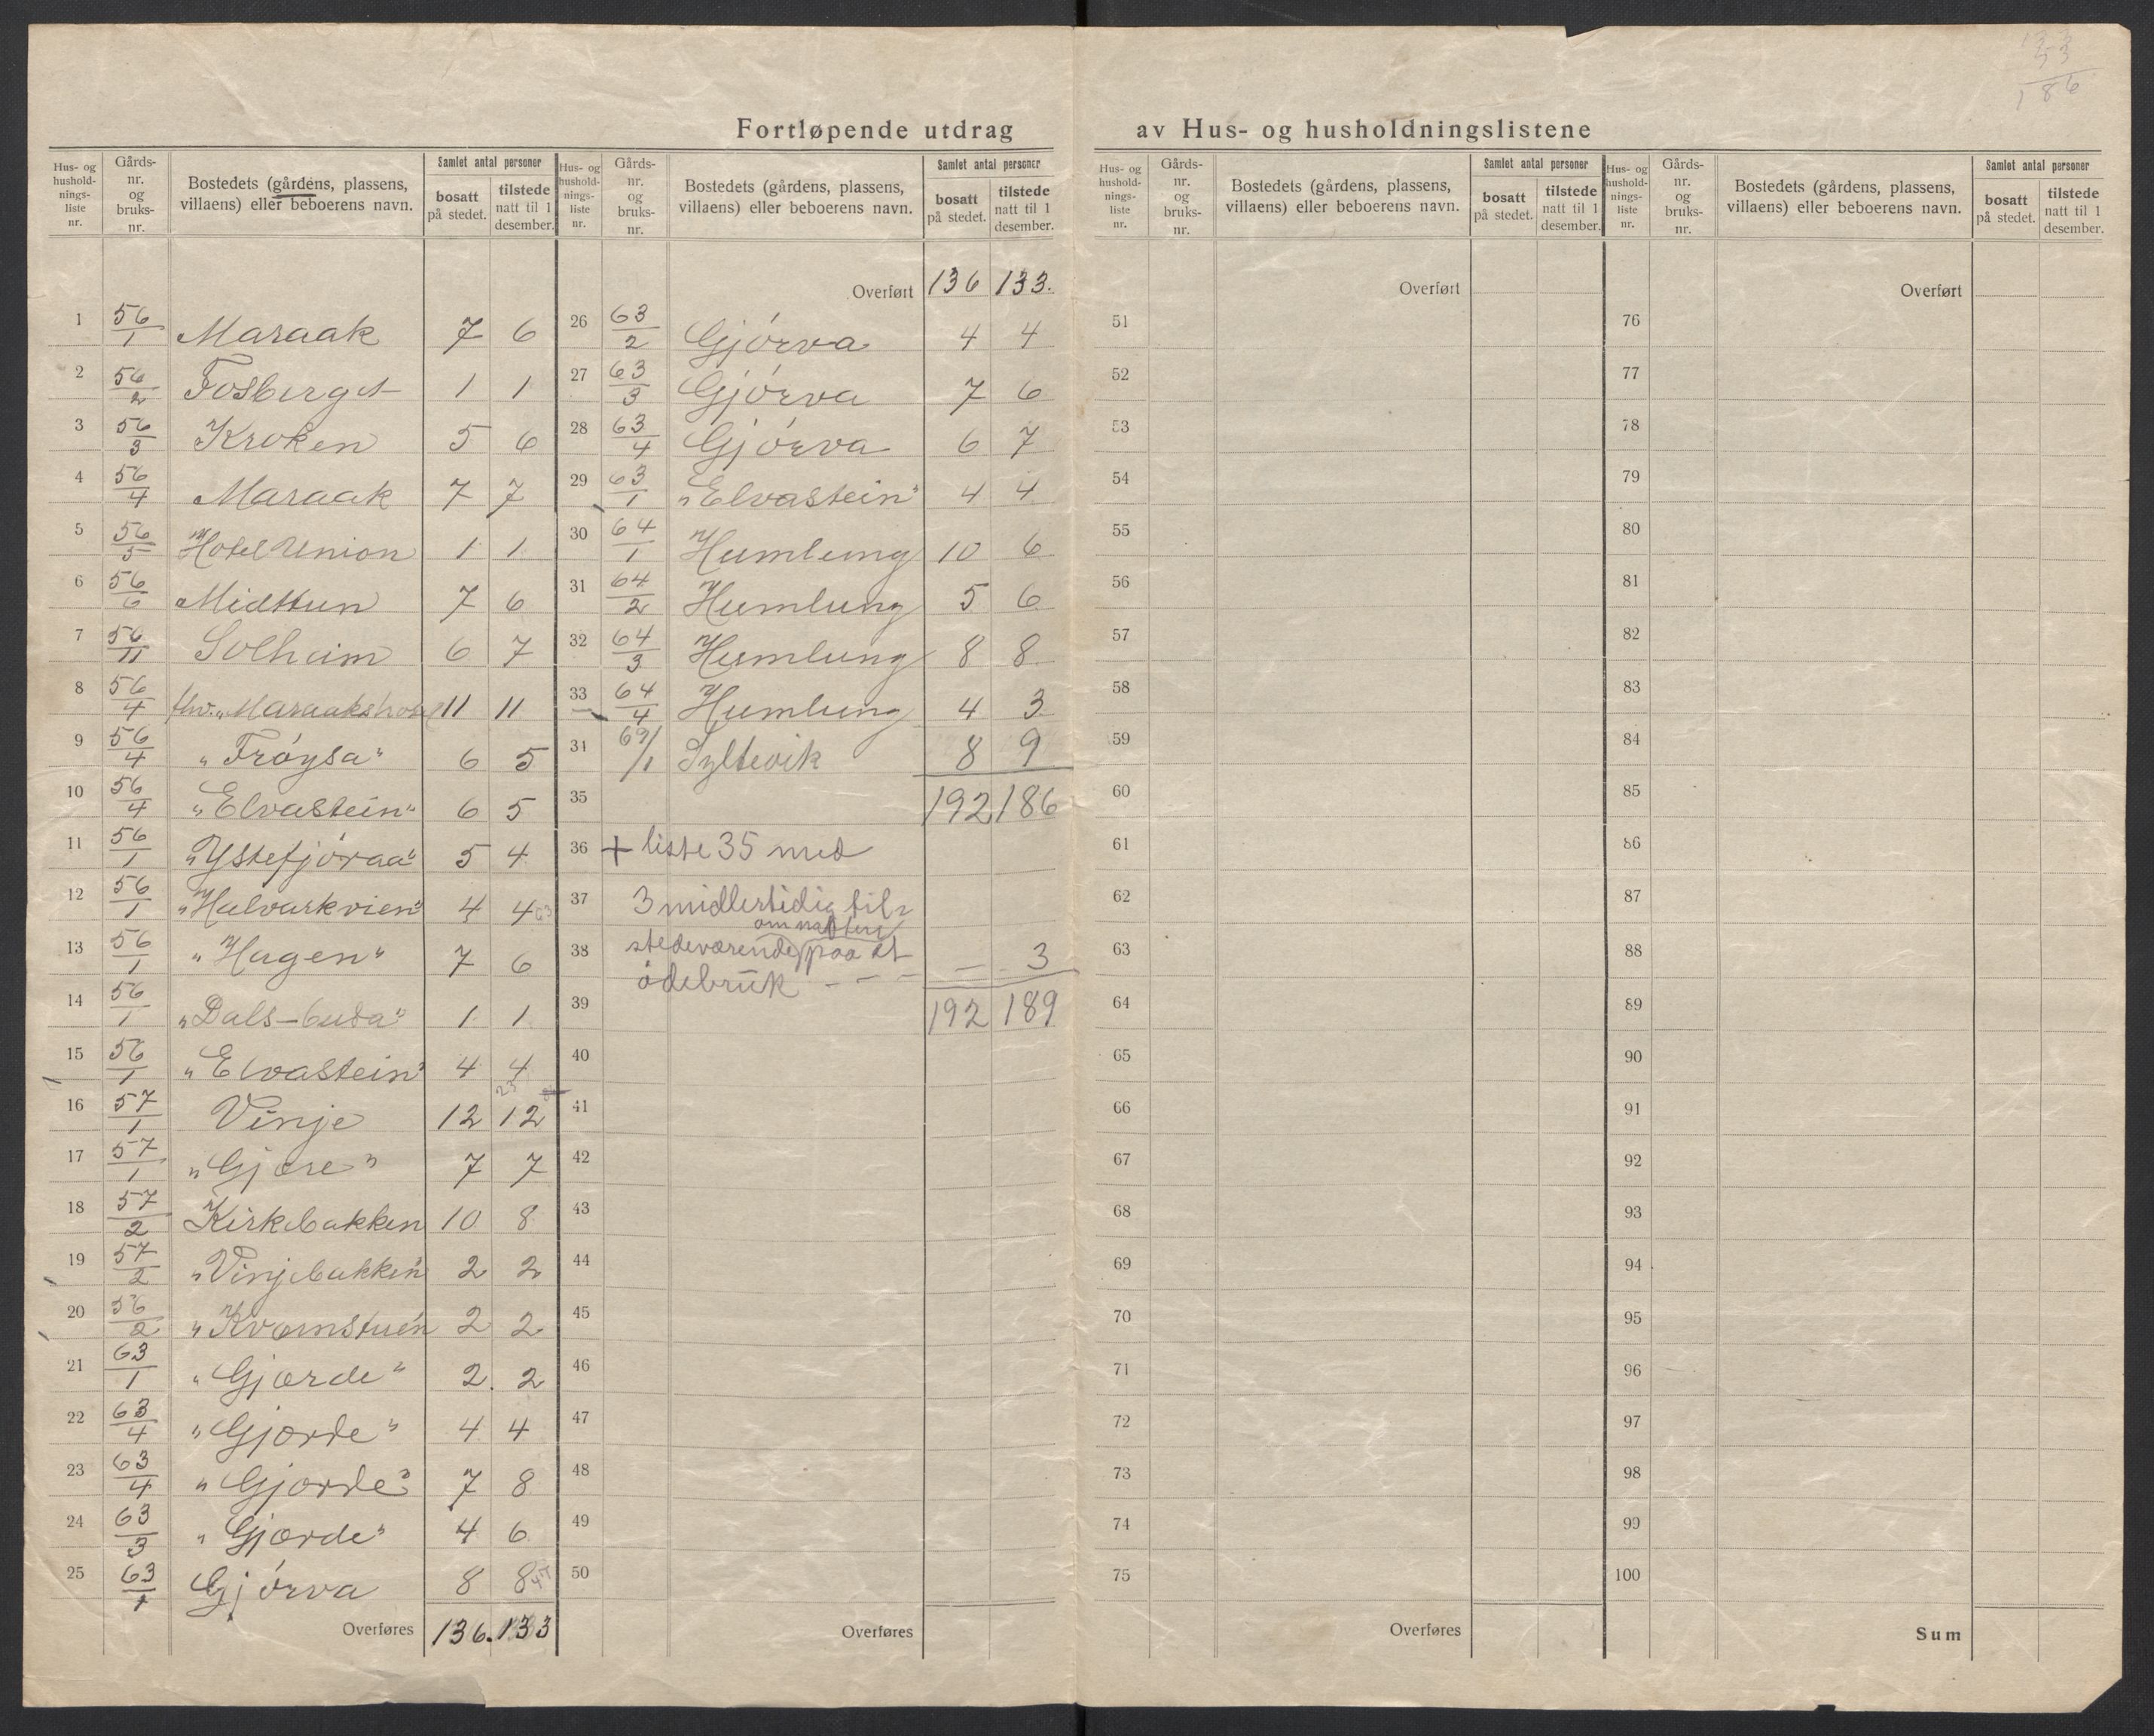 133
53
186
Fortløpende utdrag av Hus- og husholdningslistene
Hus- og husholdnings- liste nr. | Gårds- nr. og bruks- nr. | Bostedets (gårdens, plassens, villaens) eller beboerens navn. | Samlet antal personer | bosatt på stedet. | tilstede natt til 1 desember.
1 56/1 Maraak 7 6
2 56/2 Fosberget 1 1
3 56/3 Kroken 5 6
4 56/4 Maraak 7 7
5 56/5 Hotel Union 1 1
6 56/6 Midttun 7 6
7 56/11 Solheim 6 7
8 56/4 "Maraakshotel 11 11
9 56/4 "Frøysa" 6 5
10 56/4 "Elvastein" 6 5
11 56/1 "Ystefjøraa" 5 4
12 56/1 "Halvarkvien" 4 4 63
13 56/1 "Hagen" 7 6
14 56/1 "Dals-buda" 1 1
15 56/1 "Elvastein" 4 4
23
16 57/1 Vinje 12 12
17 57/1 "Gjøre" 7 7
18 57/2 Kirkebakken 10 8
19 57/2 "Vinjebakken 2 2
20 56/2 "Kvernstuen 2 2
21 63/1 "Gjørde" 2. 2
22 63/4 "Gjørde" 4 4
23 63/4 "Gjørde" 7 8
24 63/3 "Gjørde" 4 6
25 63/1 Gjørva 8 8 47
Overføres 136. 133
Hus- og husholdnings- liste nr. | Gårds- nr. og bruks- nr. | Bostedets (gårdens, plassens, villaens) eller beboerens navn. | Samlet antal personer | bosatt på stedet. | tilstede natt til 1 desember.
Overført 136 133.
26 63/2 Gjørva 4 4
27 63/3 Gjørva 7 6
28 63/4 Gjørva 6 7
29 63/1 "Elvastein" 4 4
30 64/1 Humlung 10 6
31 64/2 Humlung 5 6
32 64/3 Humlung 8 8
33 64/4 Humlung 4 3
34 69/1 Syltevik 8 9
35 192 186
36 + liste 35 med
37 3 midlertidig til-
om natten
38 stedeværende paa et — 3
ødebruk - - -
39 192 189
40
41
42
43
44
45
46
47
48
49
50
Overføres
Hus- og husholdnings- liste nr. | Gårds- nr. og bruks- nr. | Bostedets (gårdens, plassens, villaens) eller beboerens navn. | Samlet antal personer | bosatt på stedet. | tilstede natt til 1 desember.
Overført
51
52
53
54
55
56
57
58
59
60
61
62
63
64
65
66
67
68
69
70
71
72
73
74
75
Overføres
Hus- og husholdnings- liste nr. | Gårds- nr. og bruks- nr. | Bostedets (gårdens, plassens, villaens) eller beboerens navn. | Samlet antal personer | bosatt på stedet. | tilstede natt til 1 desember.
Overført
76
77
78
79
80
81
82
83
84
85
86
87
88
89
90
91
92
93
94
95
96
97
98
99
100
Sum